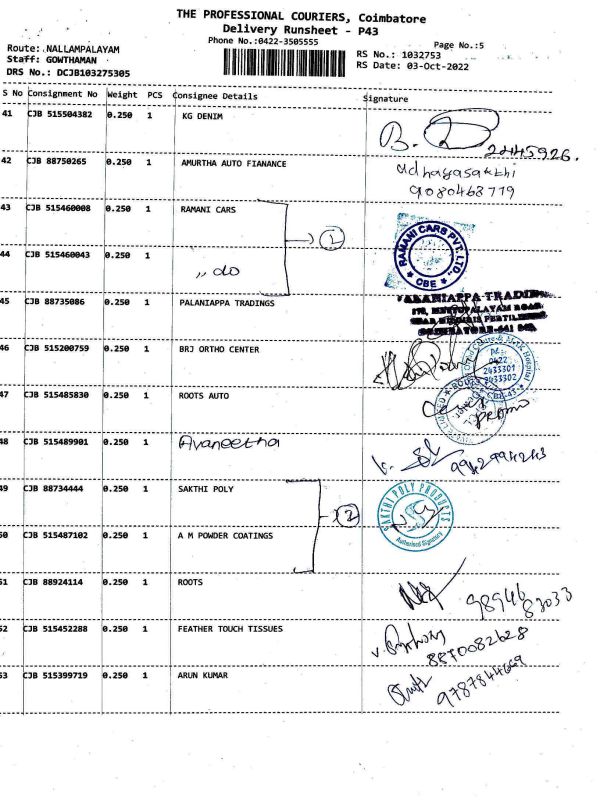 THE PROFESSIONAL COURIERS, Coimbatore
Delivery Runsheet - P43
Phone No.:0422-3505555
Page No.:5
Route: NALLAMPALAYAM
Staff: GOWTHAMAN
DRS No.: DCJB103275305
RS No.: 1032753
RS Date: 03-Oct-2022
S No Consignment No Weight PCS Consignee Details Signature
41 CJB 515504382 0.250 1 KG DENIM
B. 2245926.
42 CJB 88750265 0.250 1 AMURTHA AUTO FIANANCE
udhayasakthi
9080468779
43 CJB 515460008 0.250 1 RAMANI CARS
2
RAMANI CARS PVT. LTD., CBE
44 CJB 515460043 0.250 1 ,, do
45 CJB 88735086 0.250 1 PALANIAPPA TRADINGS
PALANIAPPA TRADING
METTUPALAYAM ROAD
COIMBATORE-641
46 CJB 515200759 0.250 1 BRJ ORTHO CENTER
0422
2433301
2433302
47 CJB 515485830 0.250 1 ROOTS AUTO
48 CJB 515489901 0.250 1 Avaneetha
49 CJB 88734444 0.250 1 SAKTHI POLY
2
SAKTHI POLY PRODUCTS
Authorised Signatory
50 CJB 515487102 0.250 1 A M POWDER COATINGS
51 CJB 88924114 0.250 1 ROOTS
98946
83033
52 CJB 515452288 0.250 1 FEATHER TOUCH TISSUES
8870082628
53 CJB 515399719 0.250 1 ARUN KUMAR
9787844669